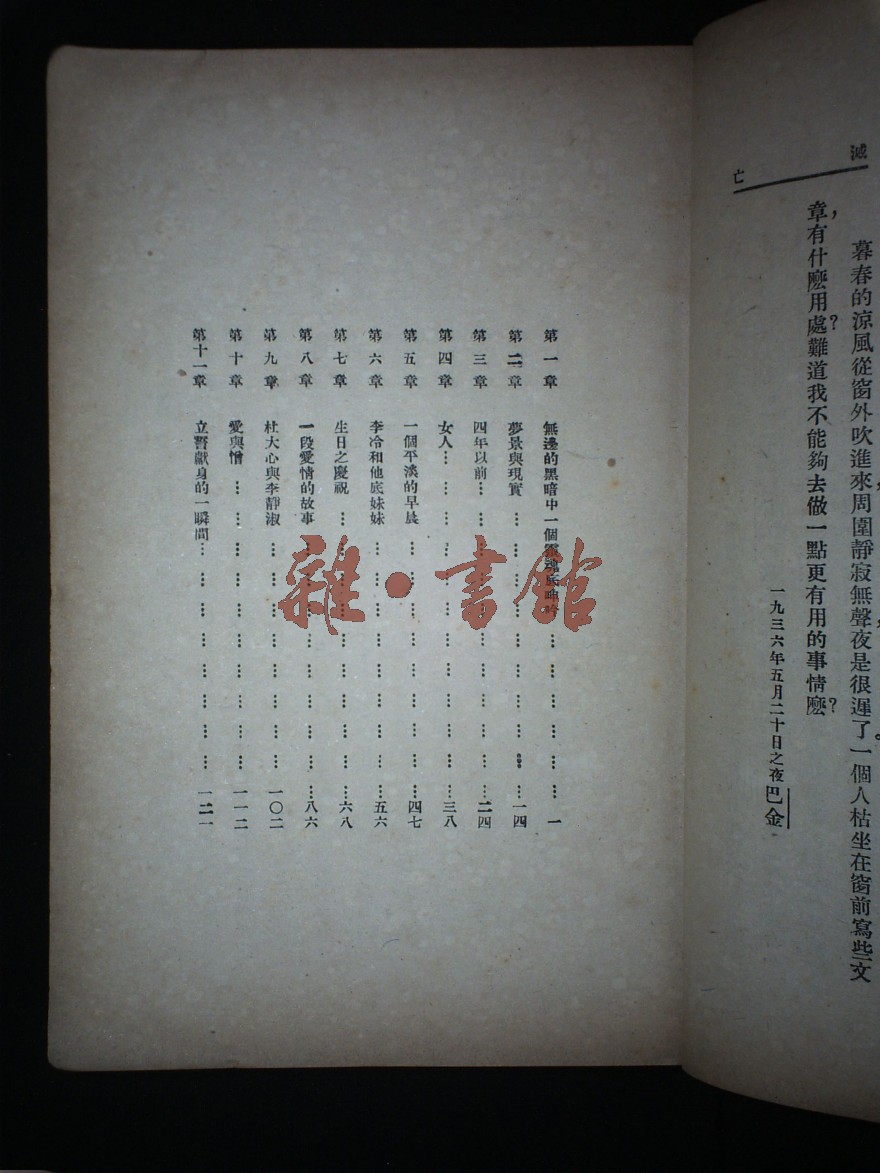 滅
亡
暮春的涼風從窗外吹進來，周圍靜寂無聲，夜是很遲了。一個人枯坐在窗前寫些文
章，有什麼用處？難道我不能夠去做一點更有用的事情麼？
一九三六年五月二十日之夜巴金
第一章 無邊的黑暗中一個靈魂底呻吟………………………一
第二章 夢景與現實………………………一四
第三章 四年以前………………………二四
第四章 女人………………………三八
第五章 一個平淡的早晨………………………四七
第六章 李冷和他底妹妹………………………五六
第七章 生日之慶祝………………………六八
第八章 一段愛情的故事………………………八六
第九章 杜大心與李靜淑………………………一〇二
第十章 愛與憎………………………一一二
第十一章 立誓獻身的一瞬間………………………一二一
雜·書館